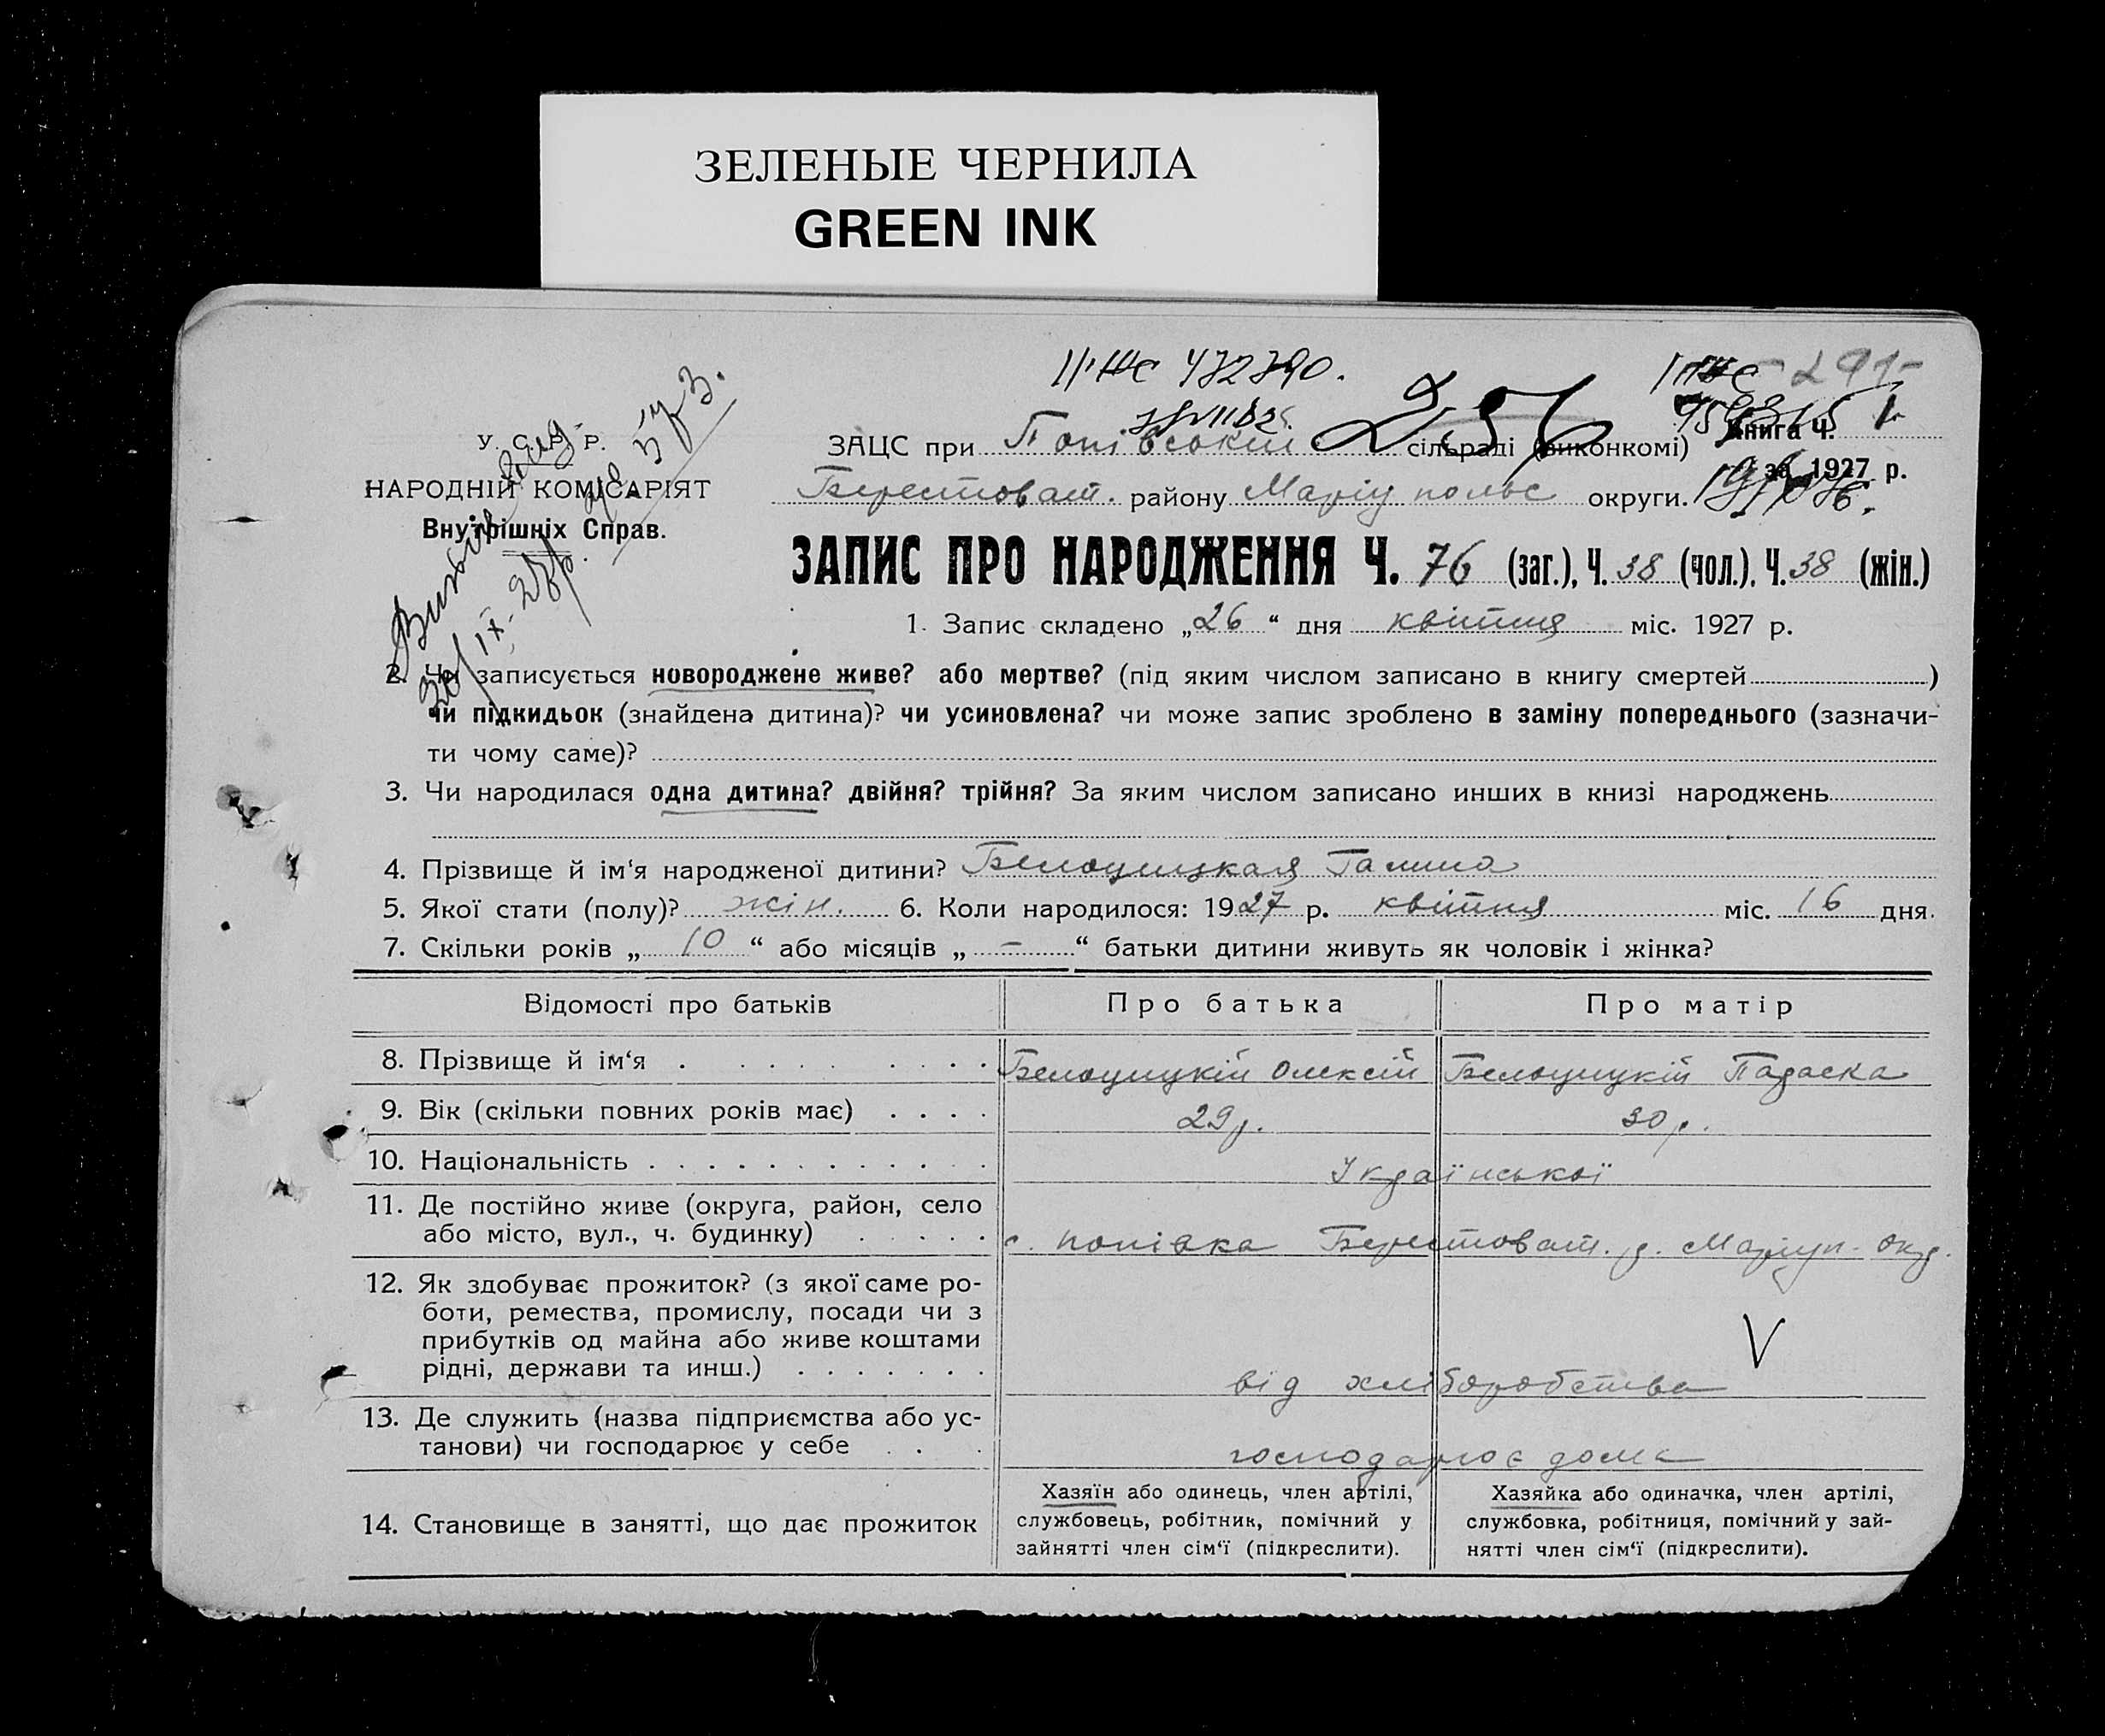 ЗЕЛЕНЫЕ ЧЕРНИЛА
GREEN INK
472790.
256
291
У. С. Р. Р.
НАРОДНІЙ КОМІСАРІЯТ
Внутрішніх Справ.
ЗАЦС при Попівській сільраді (виконкомі) Книга Ч. 1
за 1927 р.
Берестоват. району Маріупольс округи.
ЗАПИС ПРО НАРОДЖЕННЯ Ч. 76 (заг.), Ч. 38 (чол.), Ч. 38 (жін.)
1. Запис складено „26“ дня квітня міс. 1927 р.
2. Чи записується новороджене живе? або мертве? (під яким числом записано в книгу смертей )
чи підкидьок (знайдена дитина)? чи усиновлена? чи може запис зроблено в заміну попереднього (зазначи-
ти чому саме)?
3. Чи народилася одна дитина? двійня? трійня? За яким числом записано инших в книзі народжень
4. Прізвище й ім‘я народженої дитини? Белоцицкая Галина
5. Якої стати (полу)? жін. 6. Коли народилося: 1927 р. квітня міс. 16 дня.
7. Скільки років „ 10 “ або місяців „ – “ батьки дитини живуть як чоловік і жінка?
Відомості про батьків Про батька Про матір
8. Прізвище й ім‘я Белоцицкій Олексій Белоцицкій Параска
9. Вік (скільки повних років має) 29 р. 30 р.
10. Національність Української
11. Де постійно живе (округа, район, село
або місто, вул., ч. будинку) с. Попівка Берестоват. р. Маріуп. окр.
12. Як здобуває прожиток? (з якої саме ро-
боти, ремества, промислу, посади чи з
прибутків од майна або живе коштами
рідні, держави та инш.) від хліборобства
V
13. Де служить (назва підприємства або ус-
танови) чи господарює у себе господарює дома
14. Становище в занятті, що дає прожиток
Хазяїн або одинець, член артілі,
службовець, робітник, помічний у
зайнятті член сім‘ї (підкреслити).
Хазяйка або одиначка, член артілі,
службовка, робітниця, помічний у зай-
нятті член сім‘ї (підкреслити).